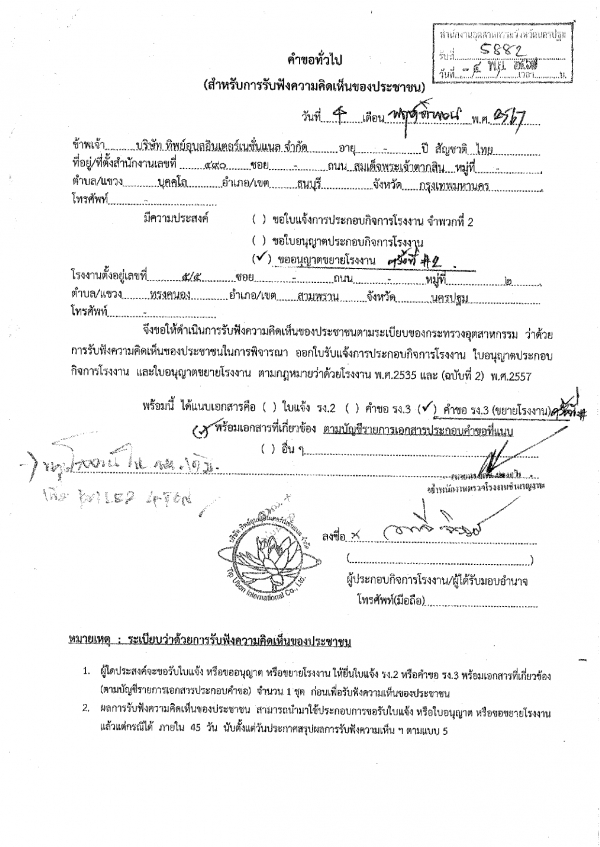 สำนักงานอุตสาหกรรมจังหวัดนครปฐม
รับที่ 5882
วันที่ ๕ พ.ย. ๒๕๖๗ เวลา น.
คำขอทั่วไป
(สำหรับการรับฟังความคิดเห็นของประชาชน)
วันที่ 5 เดือน พฤศจิกายน พ.ศ. 2567
ข้าพเจ้า บริษัท ทิพย์อุบลอินเตอร์เนชั่นแนล จำกัด อายุ - ปี สัญชาติ ไทย
ที่อยู่/ที่ตั้งสำนักงานเลขที่ ๔๙๐ ซอย - ถนน สมเด็จพระเจ้าตากสิน หมู่ที่ -
ตำบล/แขวง บุคคโล อำเภอ/เขต ธนบุรี จังหวัด กรุงเทพมหานคร
โทรศัพท์ -
มีความประสงค์ ( ) ขอใบแจ้งการประกอบกิจการโรงงาน จำพวกที่ 2
( ) ขอใบอนุญาตประกอบกิจการโรงงาน
(✓) ขออนุญาตขยายโรงงาน ครั้งที่ #2
โรงงานตั้งอยู่เลขที่ ๕/๕ ซอย - ถนน - หมู่ที่ ๒
ตำบล/แขวง ทรงคนอง อำเภอ/เขต สามพราน จังหวัด นครปฐม
โทรศัพท์ -
จึงขอให้ดำเนินการรับฟังความคิดเห็นของประชาชนตามระเบียบของกระทรวงอุตสาหกรรม ว่าด้วย
การรับฟังความคิดเห็นของประชาชนในการพิจารณา ออกใบรับแจ้งการประกอบกิจการโรงงาน ใบอนุญาตประกอบ
กิจการโรงงาน และใบอนุญาตขยายโรงงาน ตามกฎหมายว่าด้วยโรงงาน พ.ศ.2535 และ (ฉบับที่ 2) พ.ศ.2557
พร้อมนี้ ได้แนบเอกสารคือ ( ) ใบแจ้ง รง.2 ( ) คำขอ รง.3 (✓) คำขอ รง.3 (ขยายโรงงาน) ครั้งที่ #
(✓) พร้อมเอกสารที่เกี่ยวข้อง ตามบัญชีรายการเอกสารประกอบคำขอที่แนบ
( ) อื่น ๆ
บริษัท ทิพย์อุบลอินเตอร์เนชั่นแนล จำกัด
Tip Ubon International Co., Ltd.
ลงชื่อ x
( )
ผู้ประกอบกิจการโรงงาน/ผู้ได้รับมอบอำนาจ
โทรศัพท์(มือถือ)
หมายเหตุ : ระเบียบว่าด้วยการรับฟังความคิดเห็นของประชาชน
1. ผู้ใดประสงค์จะขอรับใบแจ้ง หรือขออนุญาต หรือขยายโรงงาน ให้ยื่นใบแจ้ง รง.2 หรือคำขอ รง.3 พร้อมเอกสารที่เกี่ยวข้อง
(ตามบัญชีรายการเอกสารประกอบคำขอ) จำนวน 1 ชุด ก่อนเพื่อรับฟังความเห็นของประชาชน
2. ผลการรับฟังความคิดเห็นของประชาชน สามารถนำมาใช้ประกอบการขอรับใบแจ้ง หรือใบอนุญาต หรือขอขยายโรงงาน
แล้วแต่กรณีได้ ภายใน 45 วัน นับตั้งแต่วันประกาศสรุปผลการรับฟังความเห็น ฯ ตามแบบ 5